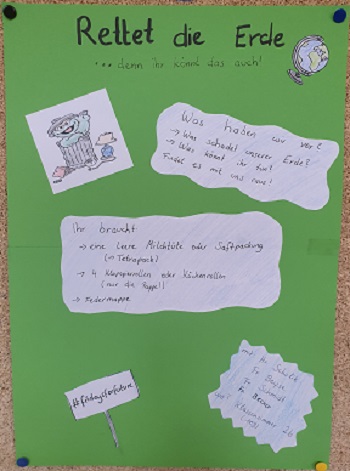 Rettet die Erde
...denn ihr könnt das auch!
Was haben wir vor?
→ Was schadet unserer Erde?
→ Was könnt ihr tun?
Findet es mit uns raus!
Ihr braucht:
→ eine leere Milchtüte oder Saftpackung
(im Tetrapack)
→ 4 Klopapierrollen oder Küchenrollen
(nur die Pappe!)
→ Federmappe
#fridaysforfuture
mit Hr. Schultz
Fr.
Fr. Schmidt
Fr.
Klassenraum 26